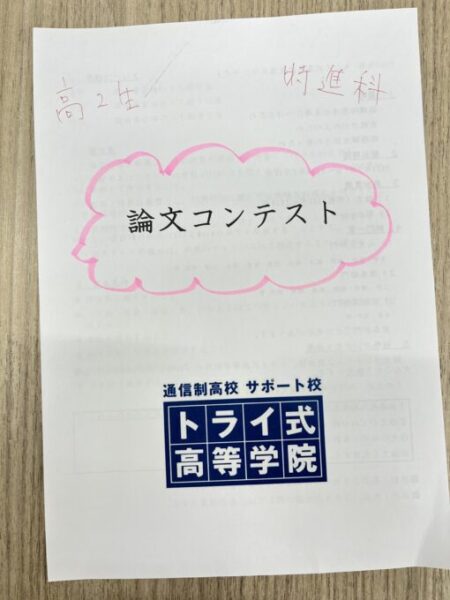 高2生
特進科
論文コンテスト
通信制高校 サポート校
トライ式
高等学院